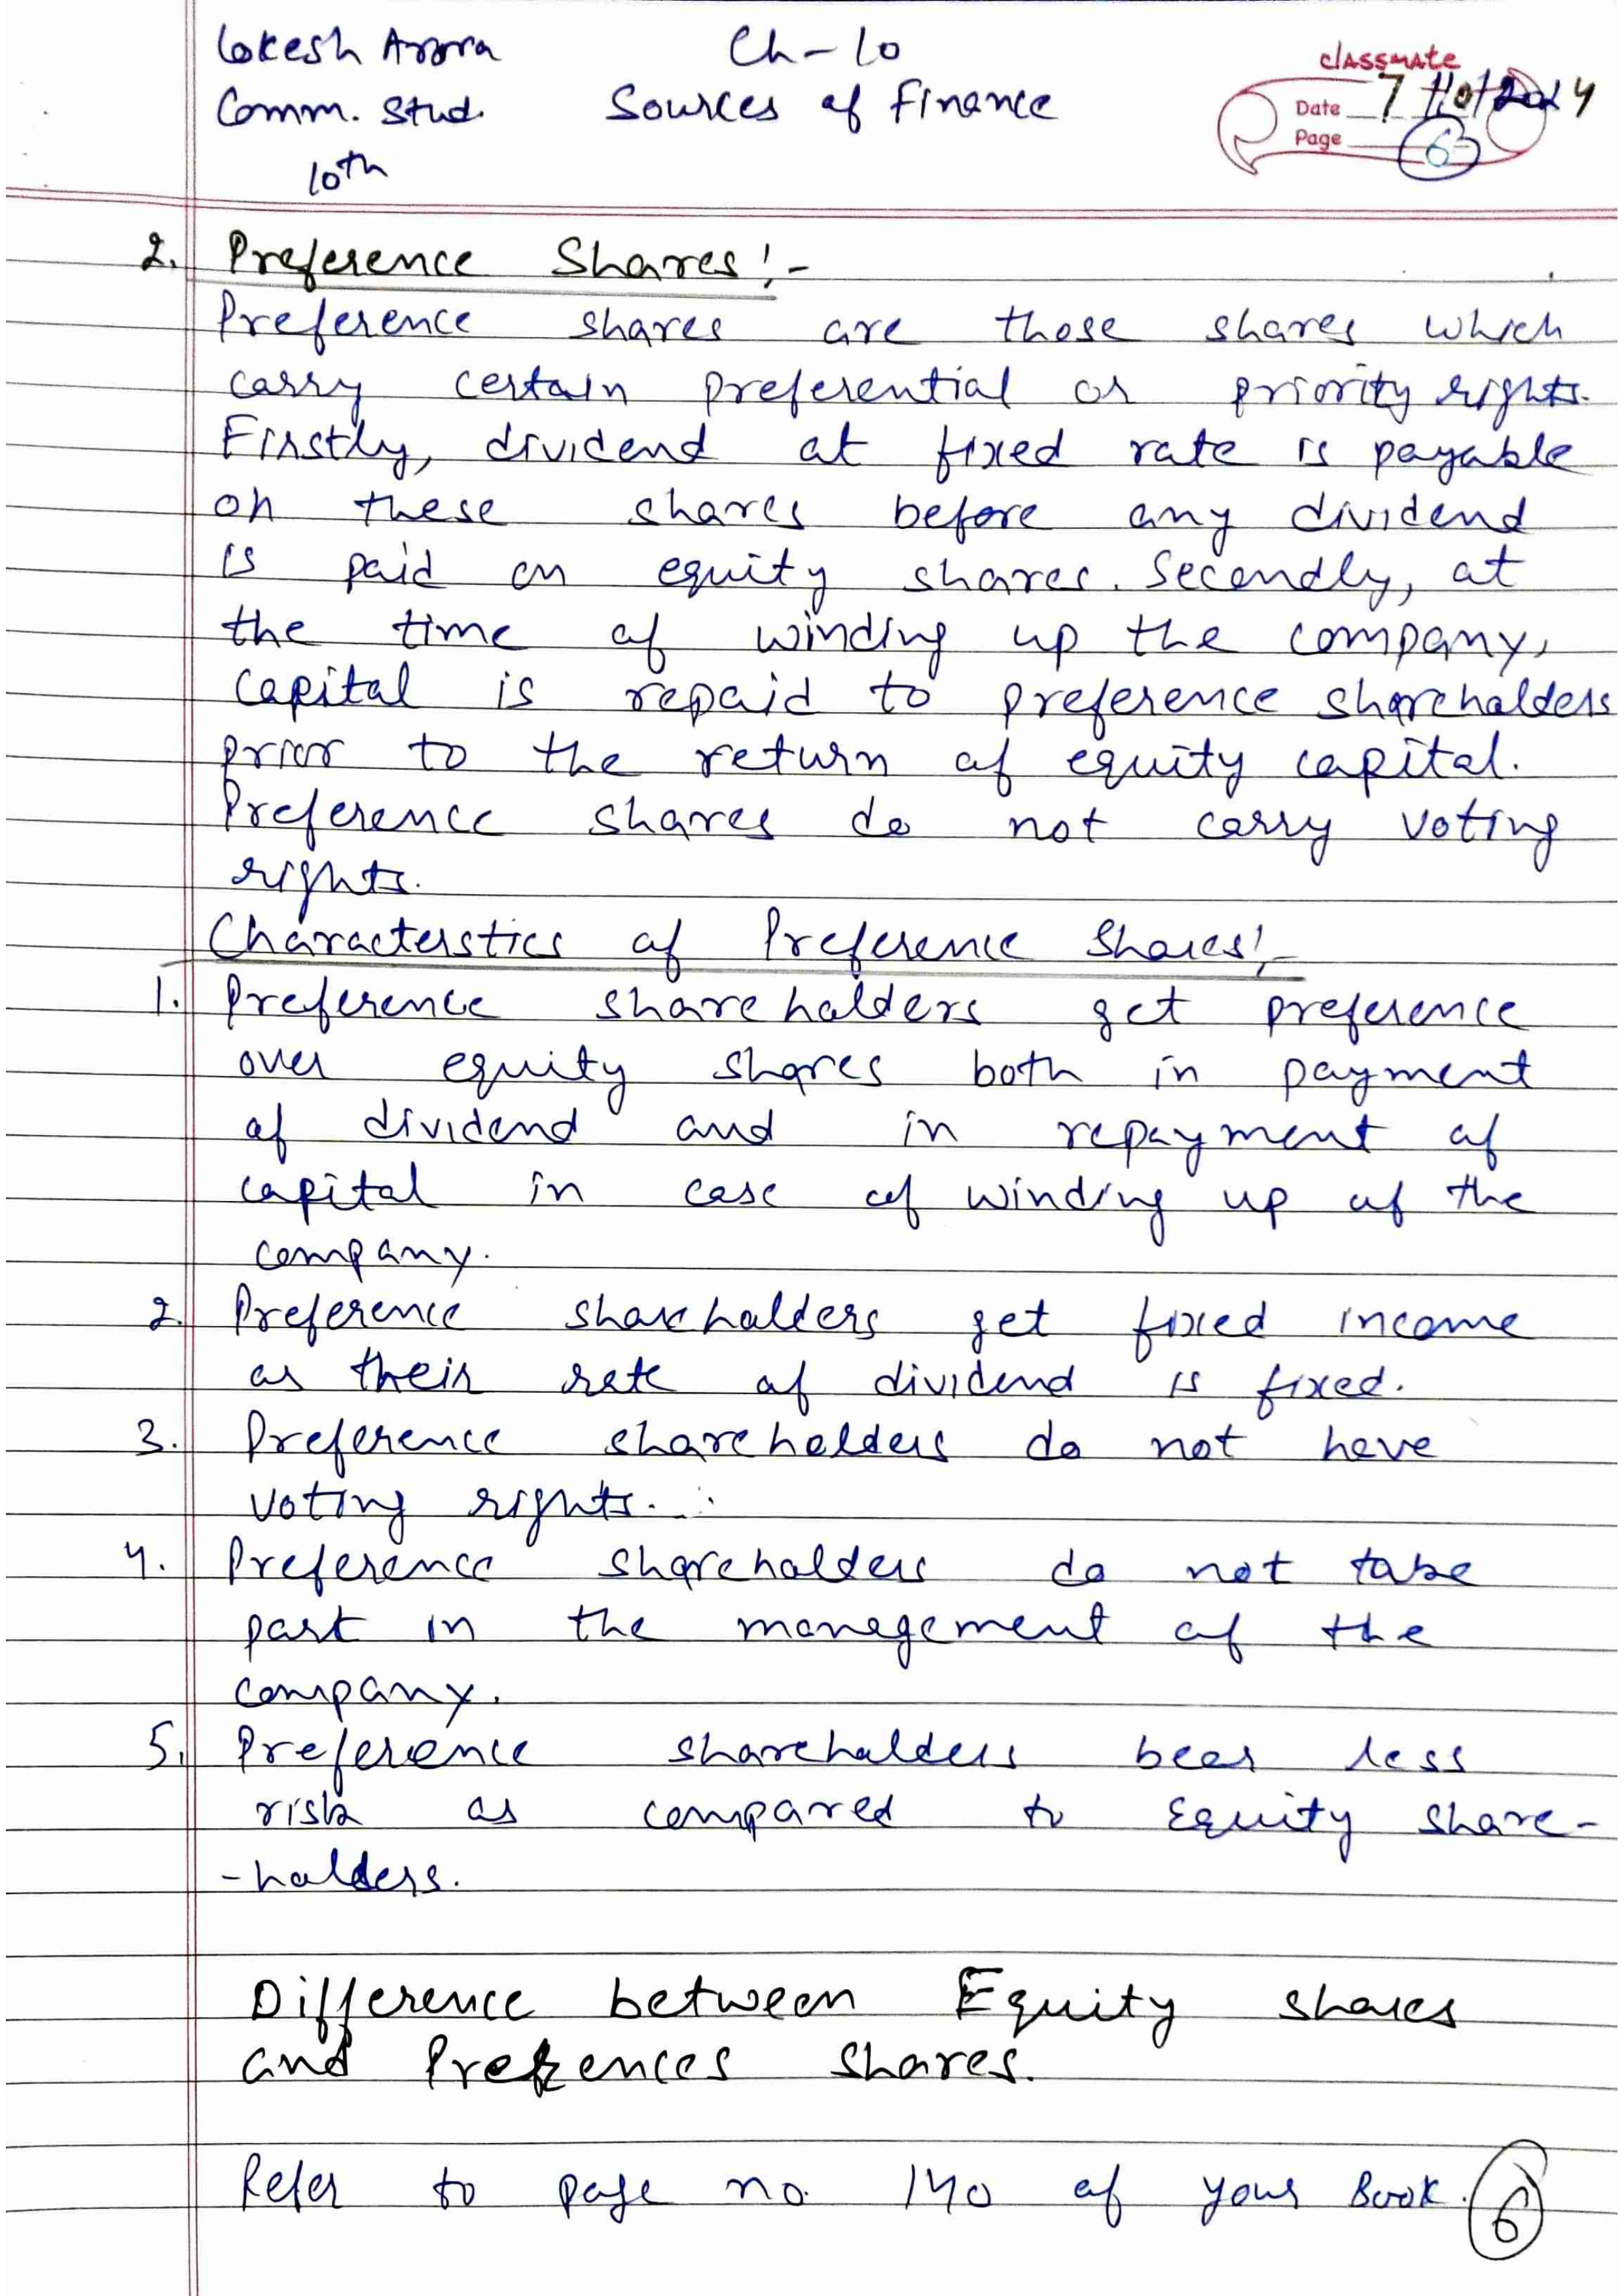 Lokesh Arora
Ch-10
classmate
Comm. Stud.
Sources of Finance
Date 7/10/2024
Page 6
10th
2. Preference Shares:-
Preference shares are those shares which
carry certain preferential or priority rights.
Firstly, dividend at fixed rate is payable
on these shares before any dividend
is paid on equity shares. Secondly, at
the time of winding up the company,
capital is repaid to preference shareholders
prior to the return of equity capital.
Preference shares do not carry voting
rights.
Characterstics of Preference Shares:-
1. Preference shareholders get preference
over equity shares both in payment
of dividend and in repayment of
capital in case of winding up of the
company.
2. Preference shareholders get fixed income
as their rate of dividend is fixed.
3. Preference shareholders do not have
voting rights.
4. Preference shareholders do not take
part in the management of the
company.
5. Preference shareholders bear less
risk as compared to Equity share-
-holders.
Difference between Equity shares
and Prefences shares.
Refer to page no. 140 of your Book.
6